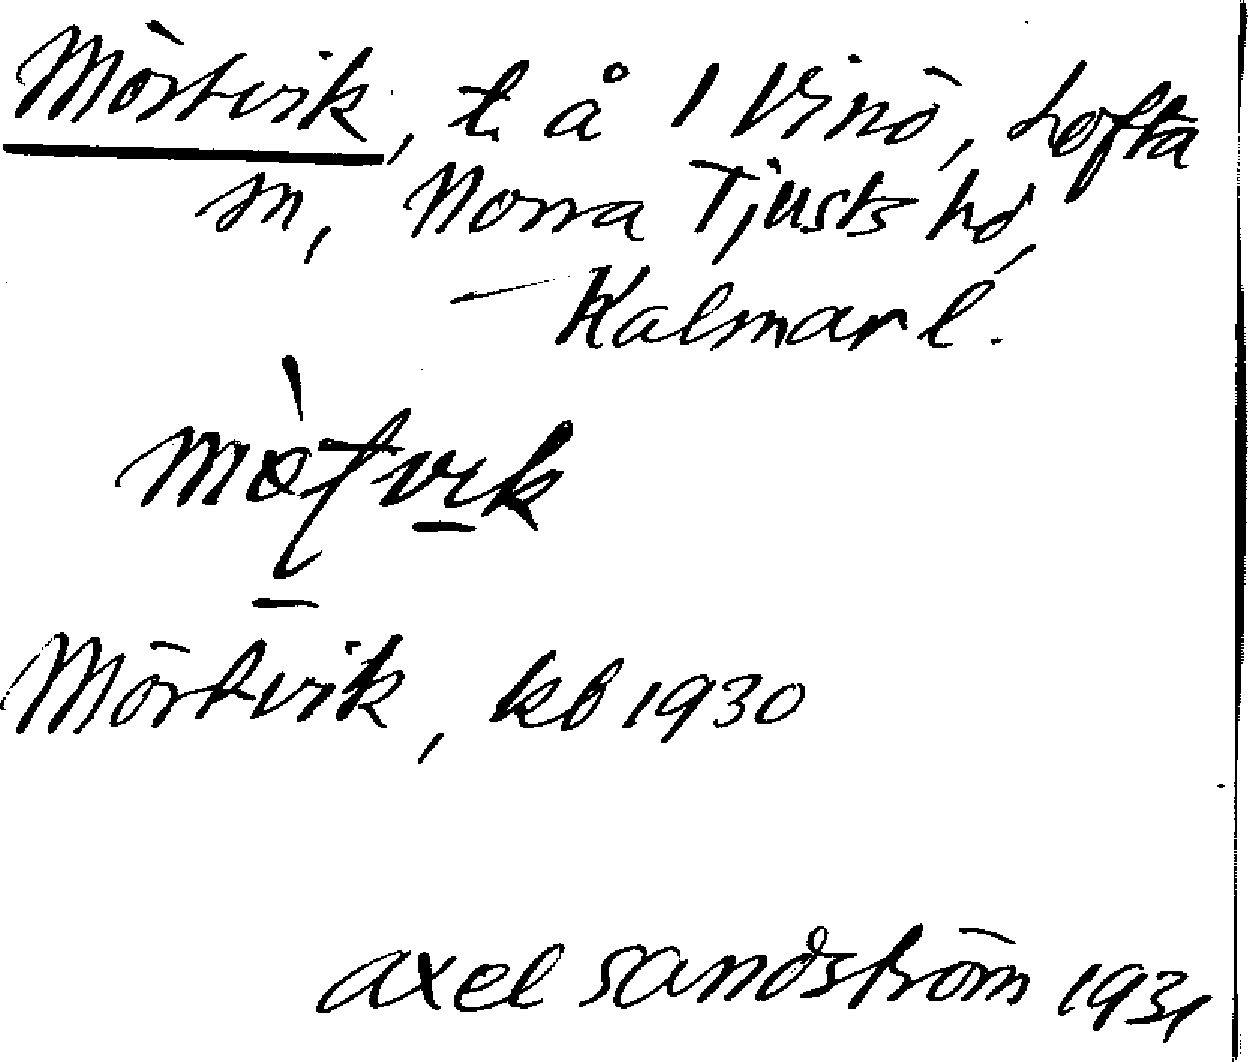 Mörtvik, t. å 1 Vinö, Lofta
sn, Norra Tjusts hd,
Kalmar l.
Mörtvik, kb 1930
Axel Sandström 1931